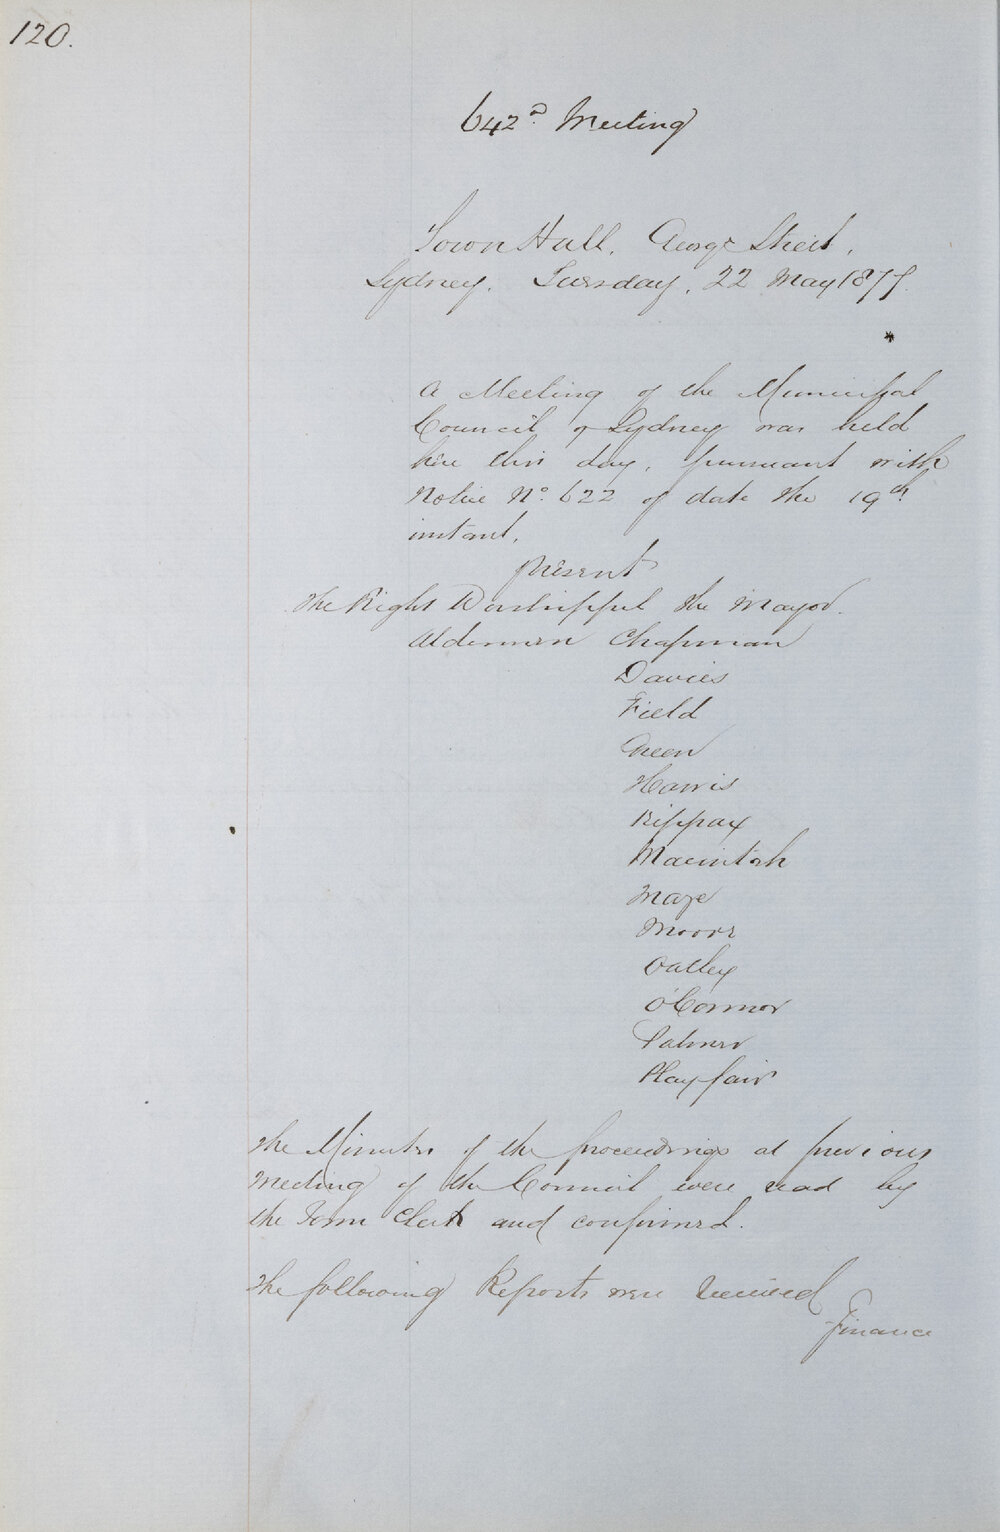 120.
642d Meeting
Town Hall, George Street,
Sydney, Tuesday, 22 May 1877.
A Meeting of the Municipal
Council of Sydney was held
here this day, pursuant with
Notice No. 622 of date the 19th
instant,
present
The Right Worshipful the Mayor.
Aldermen Chapman
Davies
Field
Green
Harris
Kippax
Macintosh
Maze
Moore
Oatley
O'Connor
Palmer
Playfair
The Minutes of the proceedings at previous
Meeting of the Council were read by
the Town Clerk and confirmed.
The following Reports were received
Finance